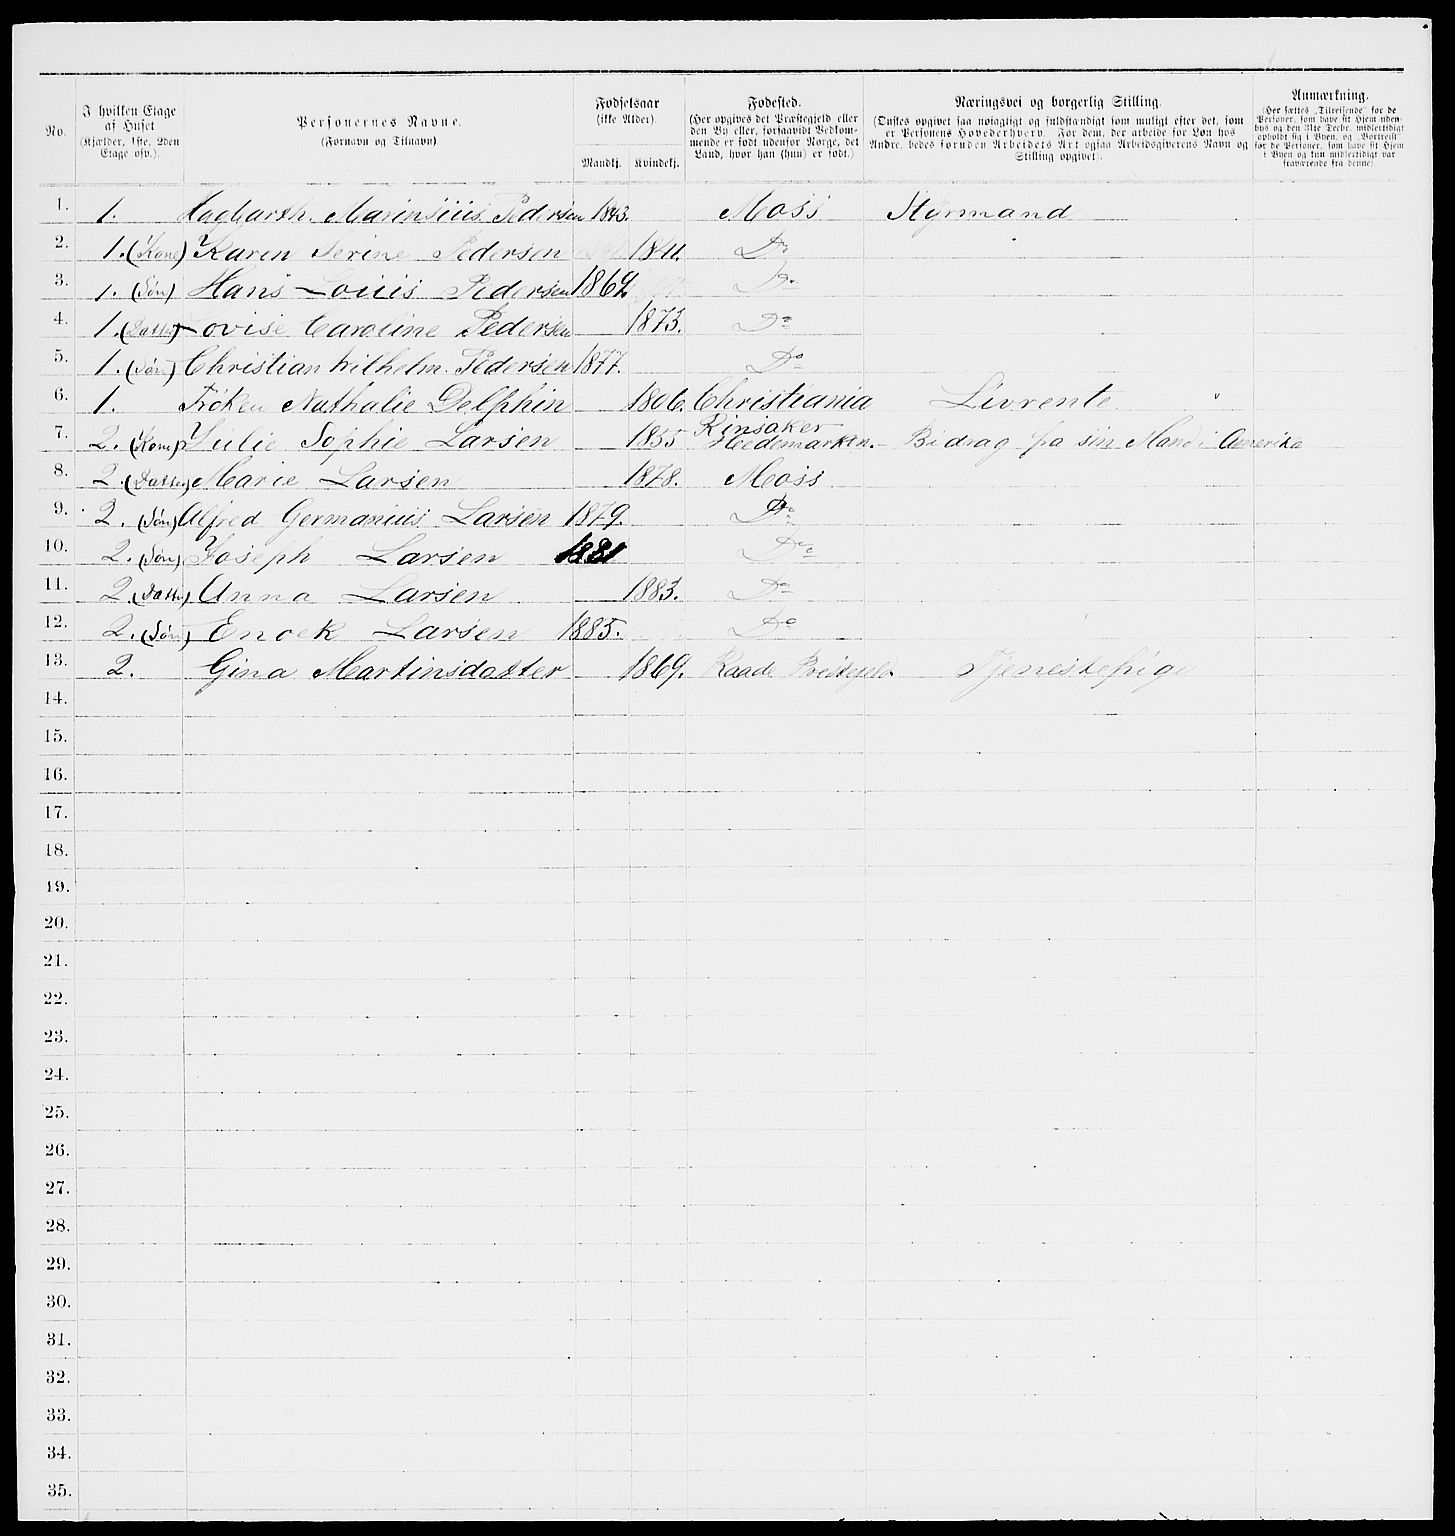 No.
I hvilken Etage af Huset (Kjælder, 1ste, 2den Etage osv.).
Personernes Navne. (Fornavn og Tilnavn)
Fødselsaar (ikke Alder).
Mandkj. Kvindekj.
Fødested. (Her opgives det Præstegjeld eller den By eller, forsaavidt Vedkommende er født udenfor Norge, det Land, hvor han (hun) er født.)
Næringsvei og borgerlig Stilling. (Ønskes opgivet saa nøiagtigt og fuldstændigt som muligt efter det, som er Personens Hovederhverv. For dem, der arbeide for Løn hos Andre, bedes foruden Arbeidets Art ogsaa Arbeidsgiverens Navn og Stilling opgivet).
Anmærkning. (Her sættes „Tilreisende" for de Personer, som have sit Hjem udenbys og den 31te Decbr. midlertidigt opholdt sig i Byen, og „Bortreist" for de Personer, som have sit Hjem i Byen og kun midlertidigt var fraværende fra denne).
1. 1. Hagbarth. Marinsius Pedersen 1843. Moss Styrmand
2. 1. (Kone) Karen Serine Pedersen 1841. Do
3. 1. (Søn) Hans Louis Pedersen 1869. Do
4. 1. (Datter) Lovise Caroline Pedersen 1873. Do
5. 1. (Søn) Christian Wilhelm. Pedersen 1877. Do
6. 1. Frøken Nathalie Delphin 1806. Christiania Livrente "
7. 2. (Kone) Julie Sophie Larsen 1855 Rinsaker Hedemarken. - Bidrag fra sin Mand i Amerika
8. 2. (Datter) Marie Larsen 1878. Moss
9. 2. (Søn) Alfred Germanius Larsen 1879. Do
10. 2. (Søn) Joseph Larsen 1881 Do
11. 2. (Datter) Anna Larsen 1883. Do
12. 2. (Søn) Enock Larsen 1885. Do
13. 2. Gina Martinsdatter 1869. Raade Tjenestepige
14.
15.
16.
17.
18.
19.
20.
21.
22.
23.
24.
25.
26.
27.
28.
29.
30.
31.
32.
33.
34.
35.